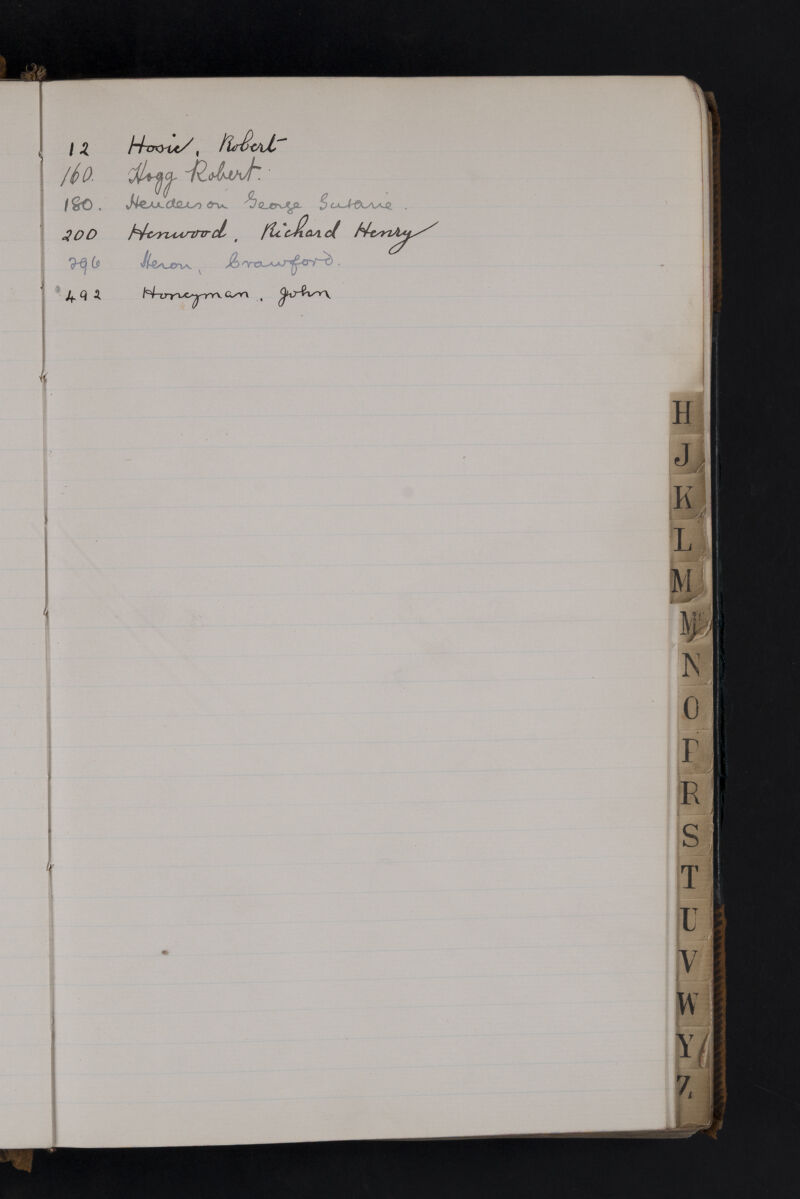 12 Hosie, Robert
160. Hogg Robert.
180. Henderson George Gutarie.
200 Henwood, Richard Henry
296 Heron, Crawford.
492 Honeyman, John
H
J
K
L
M
Mc
N
O
P
R
S
T
U
V
W
Y
Z